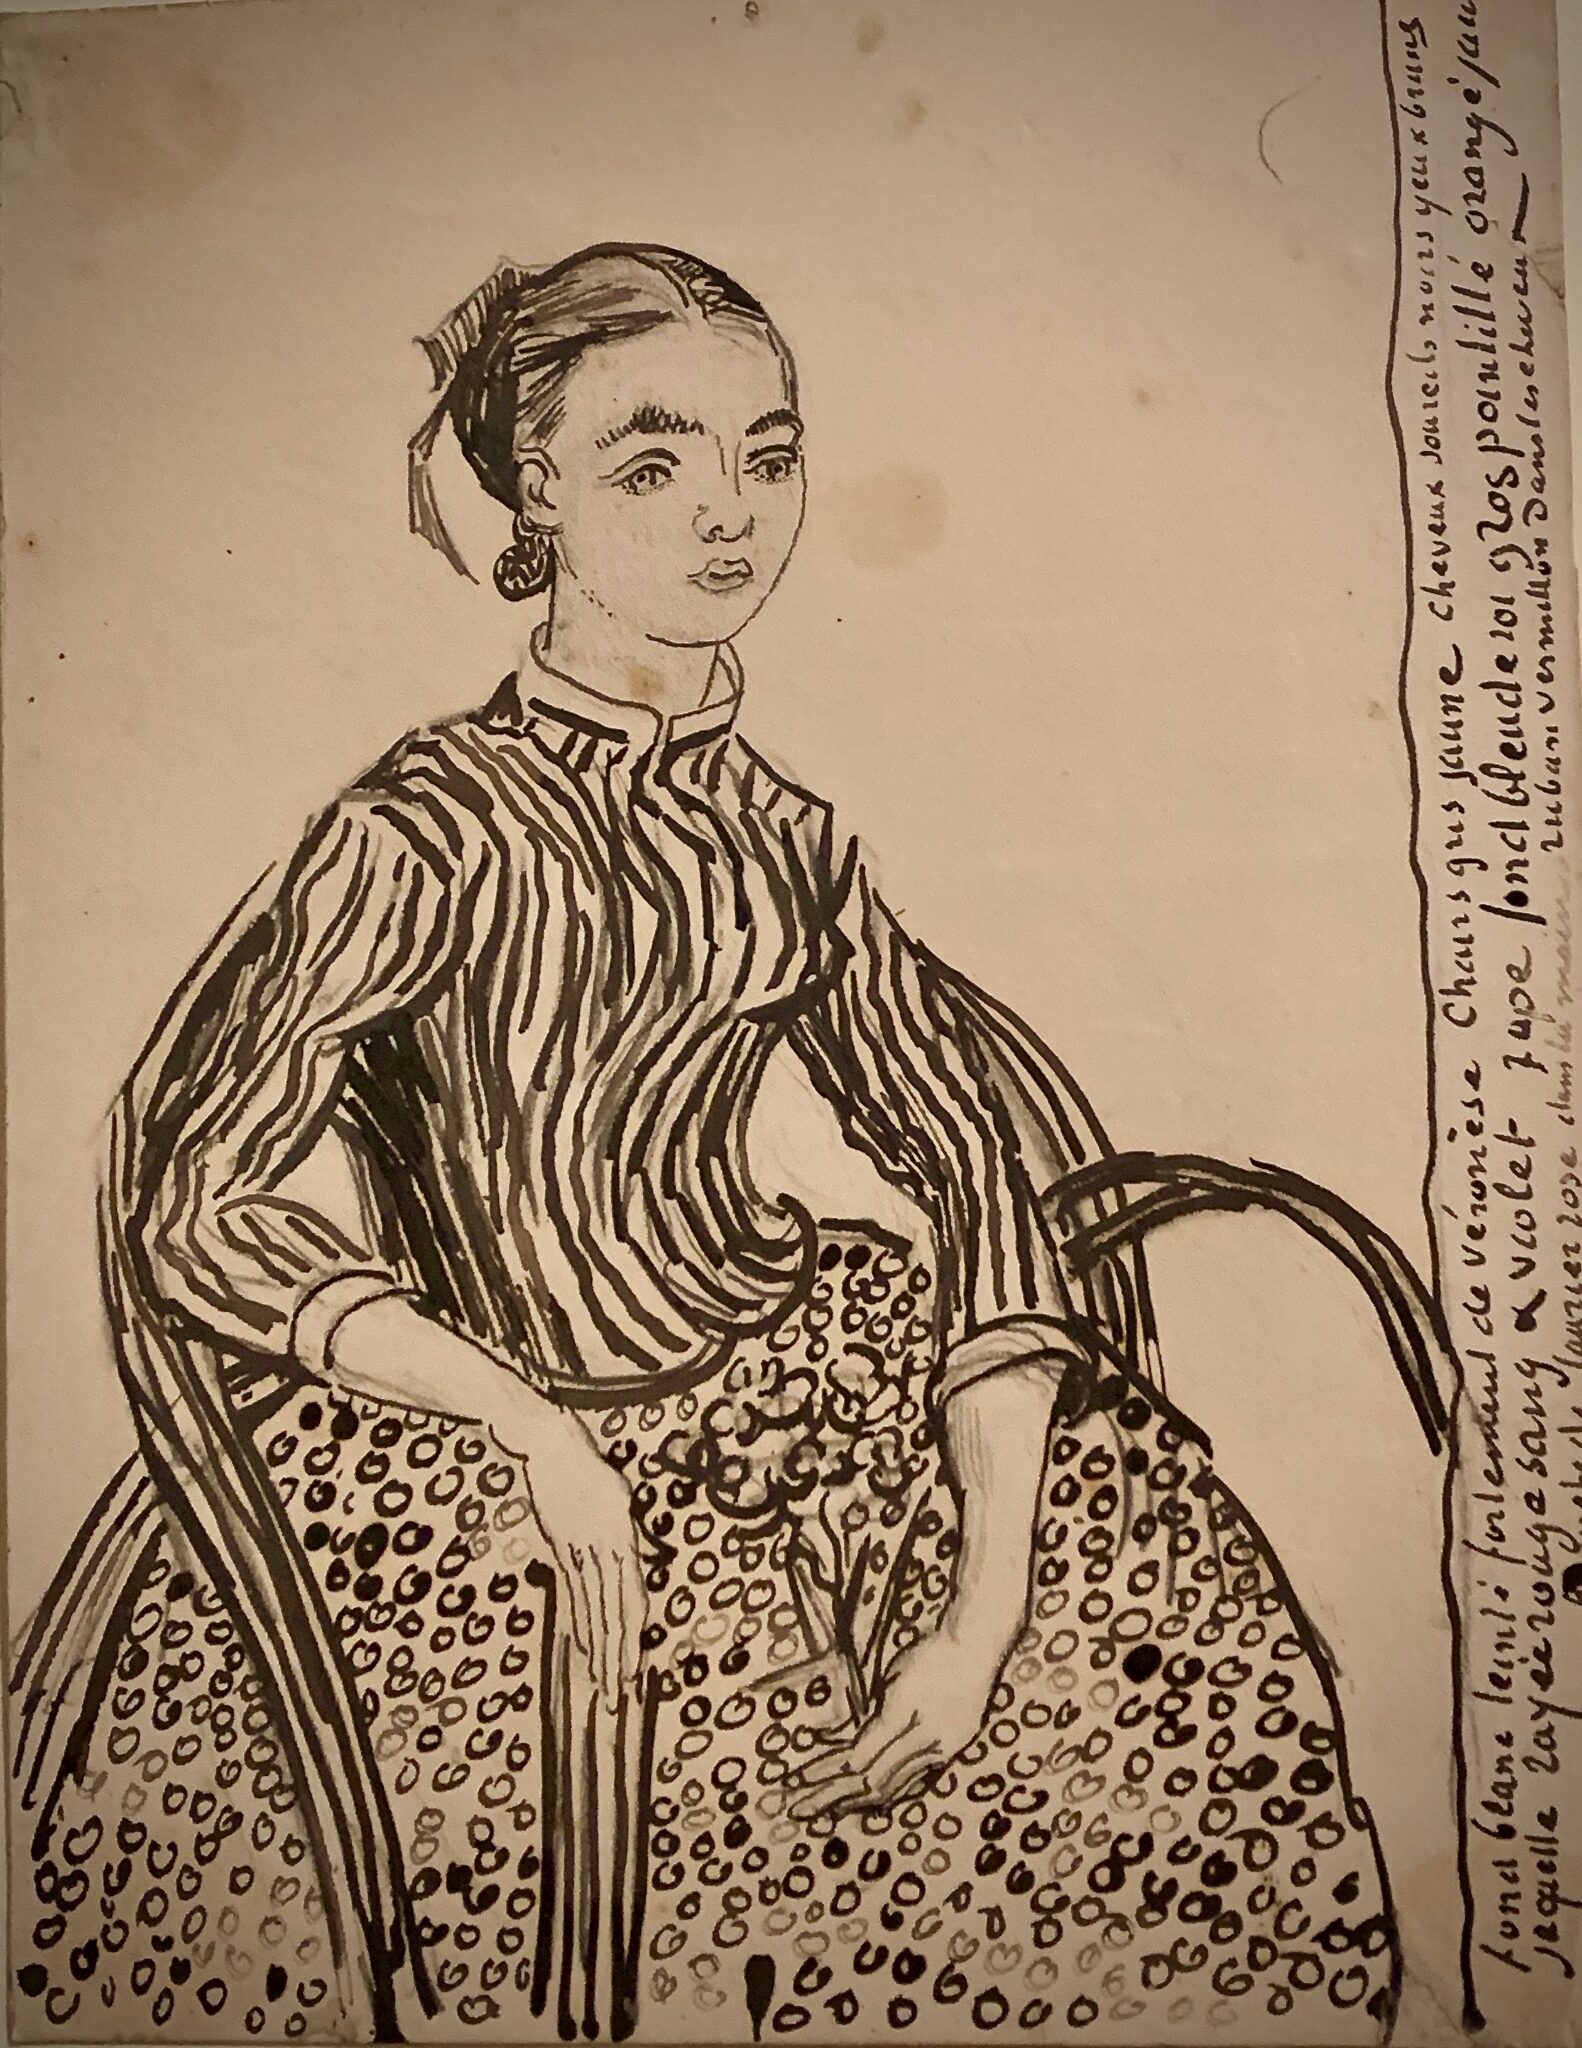 fond blanc teinté fortement de véronèse Chairs gris jaune cheveux sourcils noirs yeux bruns
jaquette rayée rouge sang & violet jupe fond bleu de roi gros pointillé orangé jau
laurier rose dans la main ruban vermillon dans les cheveux